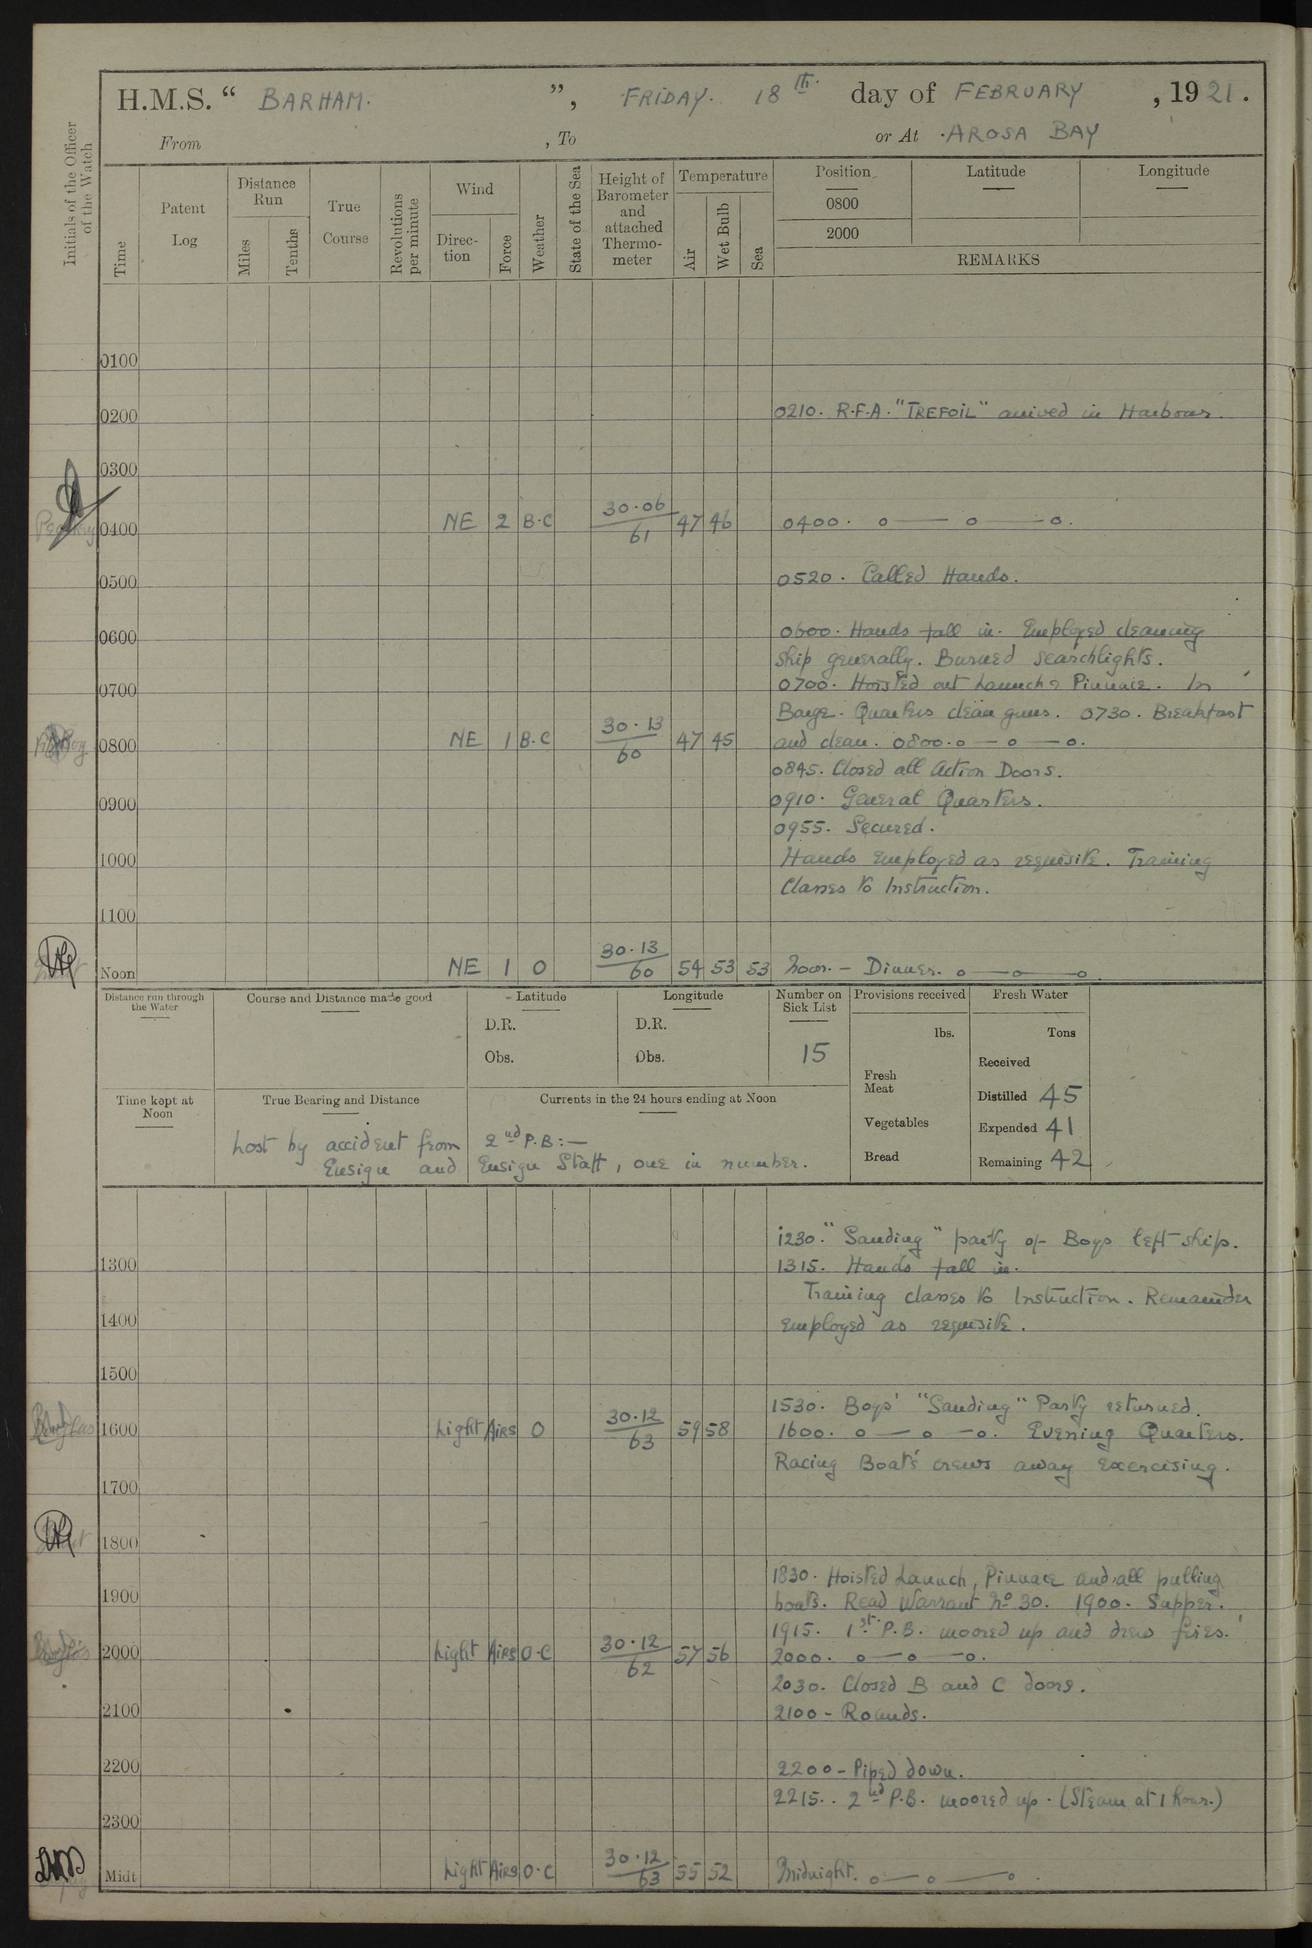 H.M.S. “ BARHAM. ”, FRIDAY. 18th. day of FEBRUARY , 1921.
From , To or At · AROSA BAY
Initials of the Officer of the Watch
Time
Patent Log
Distance Run
Miles
Tenths
True Course
Revolutions per minute
Wind
Direc-tion
Force
Weather
State of the Sea
Height of Barometer and attached Thermo-meter
Temperature
Air
Wet Bulb
Sea
Position
0800
2000
Latitude
Longitude
REMARKS
0100
0200 0210. R.F.A. "TREFOIL" arrived in Harbour.
0300
0400 NE 2 B.C 30.06 61 47 46 0400. o — o — o.
0500 0520. Called Hands.
0600 0600. Hands fall in. Employed cleaning
ship generally. Burned searchlights.
0700 0700. Hoisted out Launch & Pinnace. In
Barge. Quarters clean guns. 0730. Breakfast
0800 NE 1 B.C 30.13 60 47 45 and clean. 0800. o — o — o.
0845. Closed all Action Doors.
0900 0910. General Quarters.
0955. Secured.
1000 Hands employed as requisite. Training
Classes to Instruction.
1100
Noon NE 1 O 30.13 60 54 53 53 Noon. – Dinner. o — o — o.
Distance run through the Water
Course and Distance made good
Latitude
D.R.
Obs.
Longitude
D.R.
Obs.
Number on Sick List
15
Provisions received
lbs.
Fresh Meat
Vegetables
Bread
Fresh Water
Tons
Received
Distilled 45
Expended 41
Remaining 42
Time kept at Noon
True Bearing and Distance
Currents in the 24 hours ending at Noon
Lost by accident from 2nd P.B:—
Ensign and Ensign Staff, one in number.
1230. "Sanding" party of Boys left ship.
1300 1315. Hands fall in.
Training classes to Instruction. Remainder
1400 employed as requisite.
1500
1530. Boys' "Sanding" Party returned.
1600 Light Airs O 30.12 63 59 58 1600. o — o — o. Evening Quarters.
Racing Boats' crews away exercising.
1700
1800
1830. Hoisted Launch, Pinnace and all pulling
1900 boats. Read Warrant No 30. 1900. Supper.
1915. 1st. P.B. moored up and drew fires.
2000 Light Airs O.C 30.12 62 57 56 2000. o — o — o.
2030. Closed B and C doors.
2100 2100 – Rounds.
2200 2200 – Piped down.
2215. 2nd P.B. moored up. (Steam at 1 hour.)
2300
Midt Light Airs O.C 30.12 63 55 52 Midnight. o — o — o.